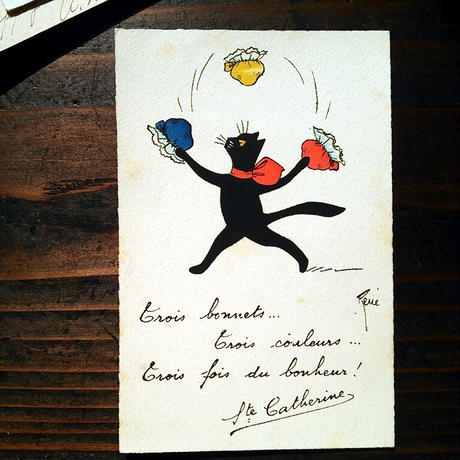 Trois bonnets...
Trois couleurs...
Trois fois du bonheur!
Ste Catherine
René